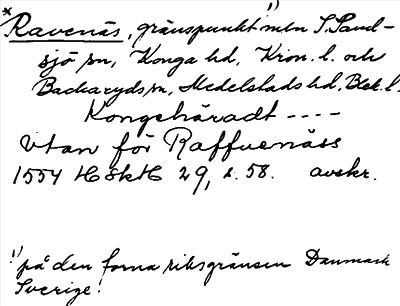 * Ravenäs, gränspunkt¹⁾ mln S. Sand-
sjö sn, Konga hd, Kron. l. och
Backaryds sn, Medelstads hd, Blek. l.
Kongshäradt ----
Utan för Raffuenäss
1554 HSkH 29, s. 58. avskr.
¹⁾ på den forna riksgränsen Danmark
Sverige!